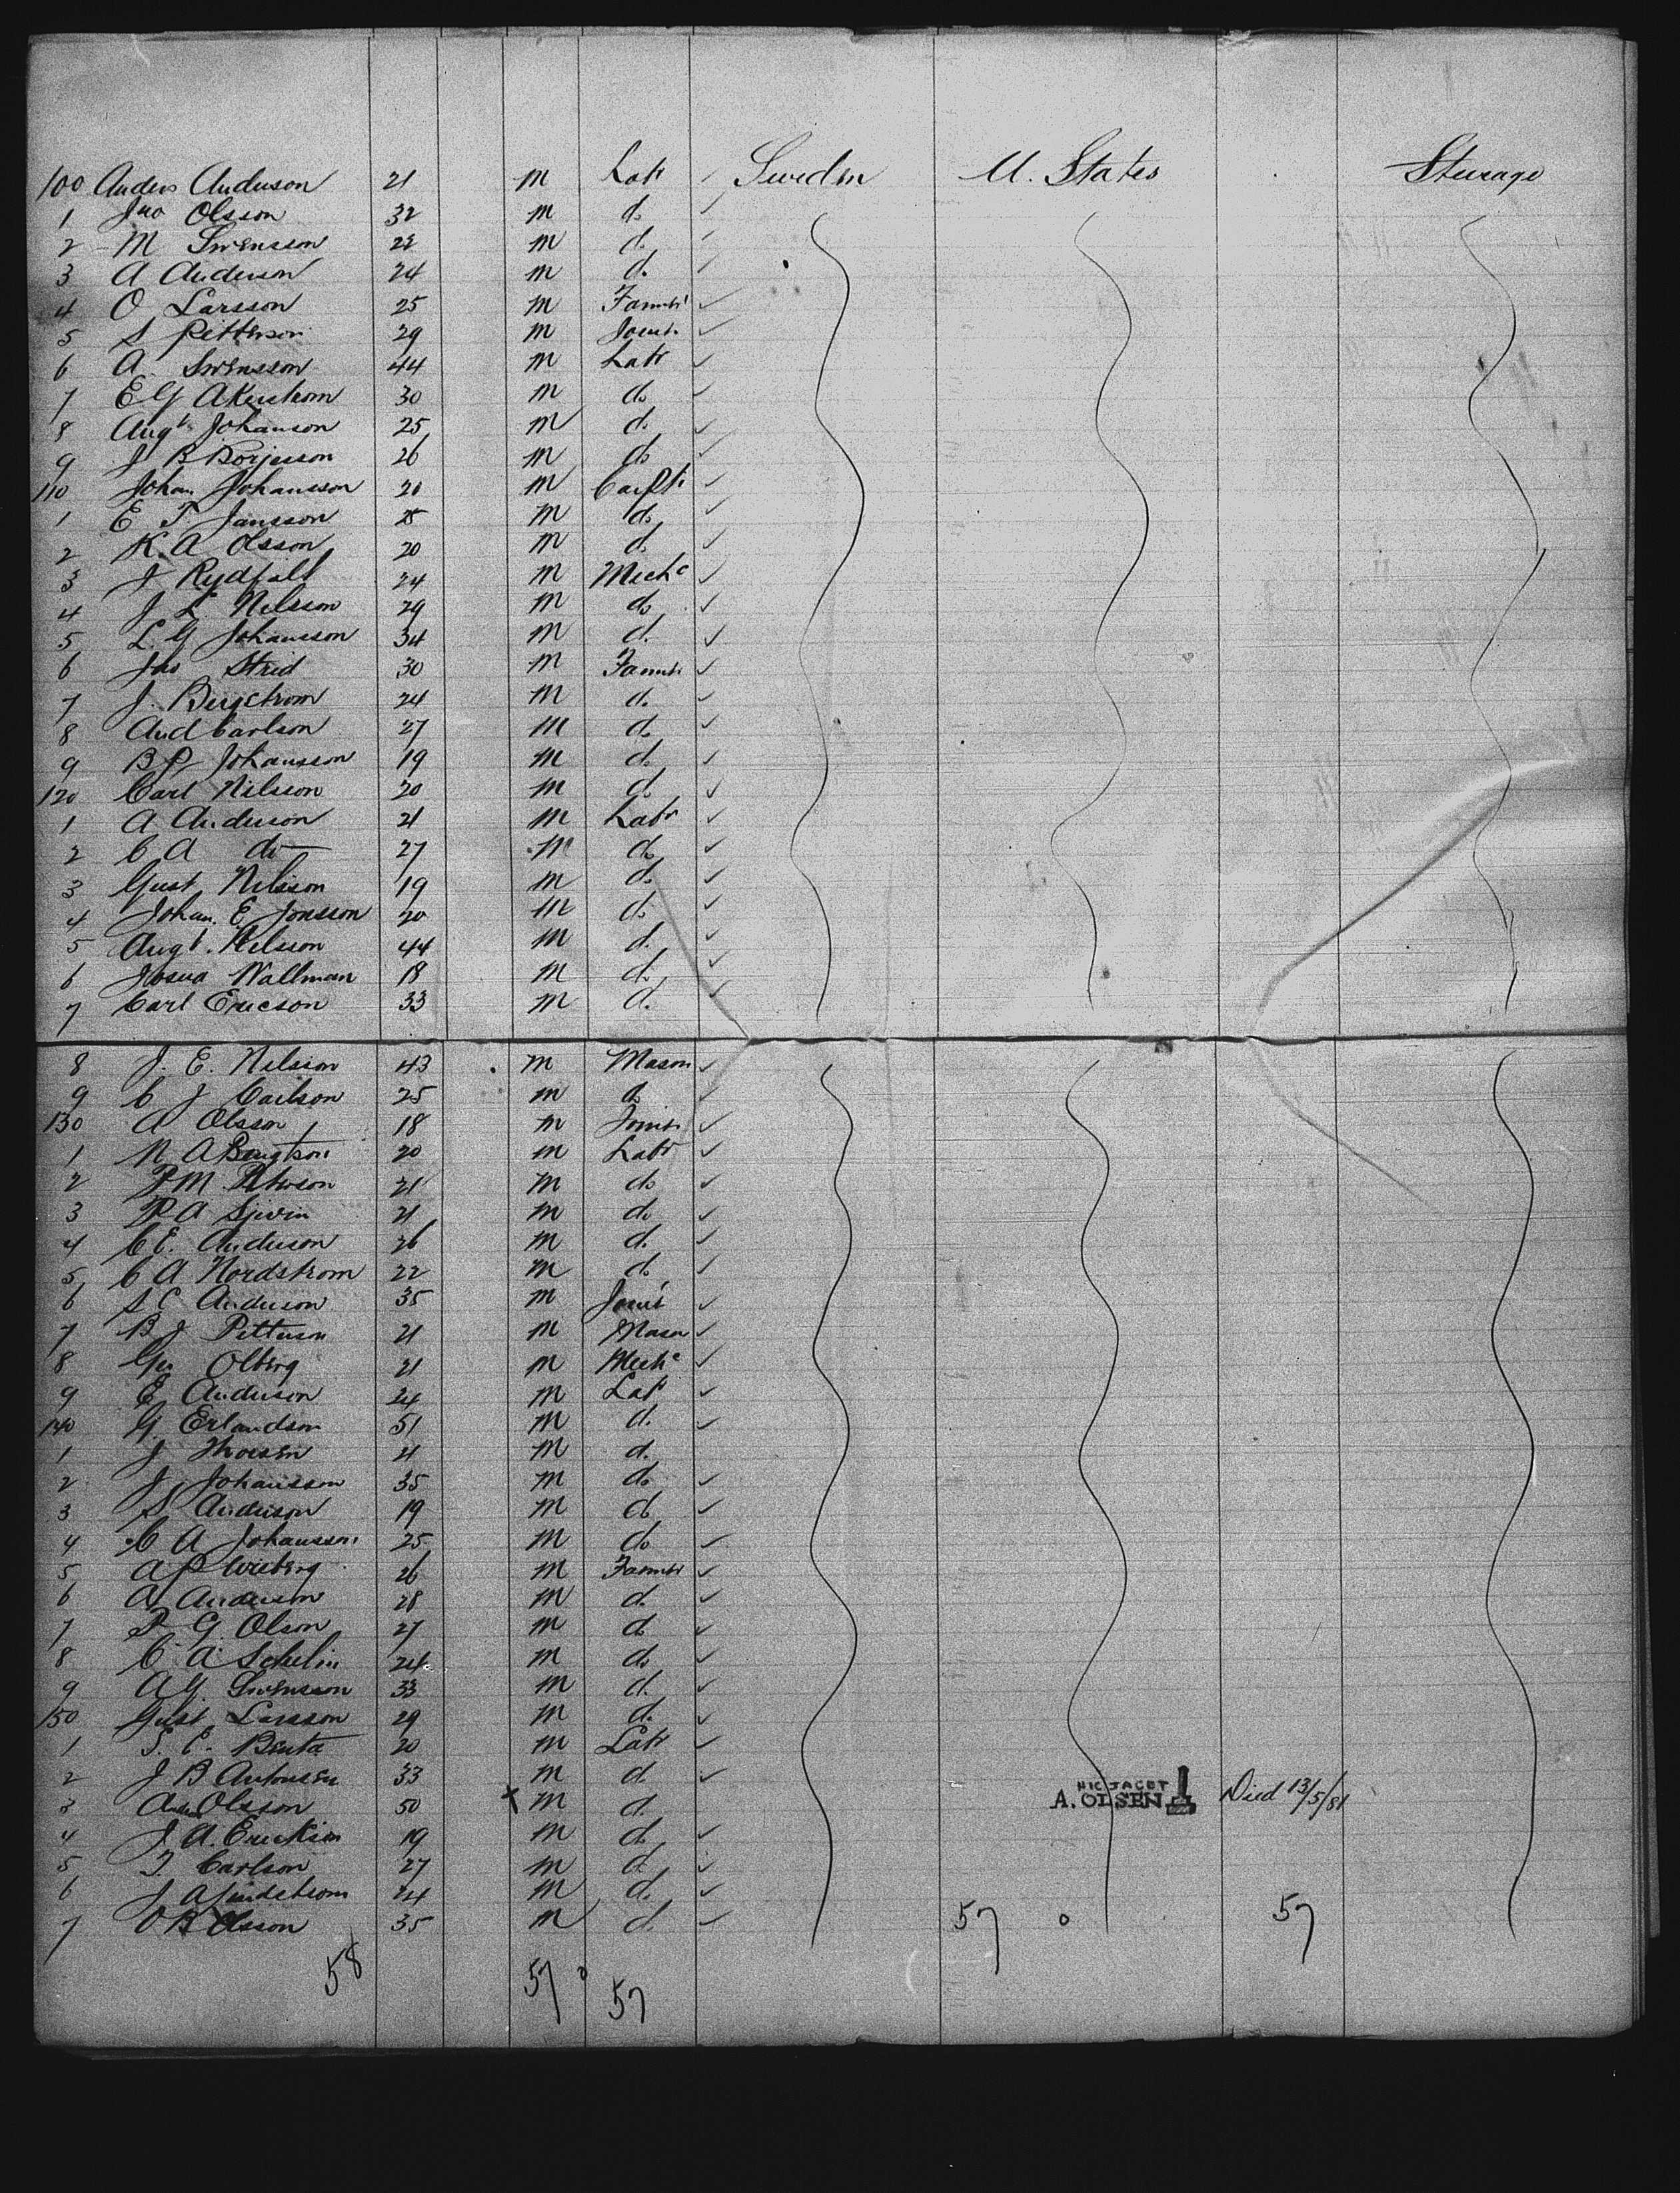 100 Anders Anderson 21 m Labr Sweden U. States Steerage
1 Jno Olsson 32 m do
2 M Swensson 22 m do
3 A Anderson 24 m do
4 O Larsson 25 m Farmr
5 S Petterson 29 m Joinr
6 A Swensson 44 m Labr
7 E G Akerstrom 30 m do
8 Augt Johanson 25 m do
9 J B Borjesson 26 m do
110 Johan Johansson 20 m Carptr
1 E T Jansson 25 m do
2 K. A Olsson 20 m do
3 J Rydfalt 24 m Mechc
4 J L Nilsson 29 m do
5 L. G Johansson 34 m do
6 Jno Strid 30 m Farmr
7 J. Bergstrom 24 m do
8 And Carlson 27 m do
9 B P Johansson 19 m do
120 Carl Nilsson 20 m do
1 A Anderson 21 m Labr
2 C A do 27 m do
3 Gust Nilsson 19 m do
4 Johan E Jonsson 20 m do
5 Augt. Nelsson 44 m do
6 Josua Wallman 18 m do
7 Carl Ericson 33 m do
8 J. E. Nilsson 43 m Mason
9 C J Carlson 25 m do
130 A Olsson 18 m Joinr
1 N A Bengtson 20 m Labr
2 P M Peterson 21 m do
3 P A Sjovin 21 m do
4 C E. Anderson 26 m do
5 C A Nordstrom 22 m do
6 S C Anderson 35 m Joinr
7 B J Petterson 21 m Mason
8 Geo Olberg 21 m Mechc
9 E Anderson 24 m Labr
140 G Erlandson 51 m do
1 J Thorsen 21 m do
2 J Johansson 35 m do
3 S Anderson 19 m do
4 C A Johansson 25 m do
5 A P Wieberg 26 m Farmr
6 A Anderson 28 m do
7 P G. Olson 27 m do
8 C A Schelin 24 m do
9 A G. Swensson 33 m do
150 Gust Larsson 29 m do
1 S. C. Benta 20 m Labr
2 J B Antonsen 33 m do
3 Anders Olsson 50 x m do HIC JACET A. OLSEN Died 13/5/81
4 J. A. Erickson 19 m do
5 T. Carlson 27 m do
6 J A Lindstrom 24 m do
7 O B Olsson 35 m do 57 0 57
58 57 0 57